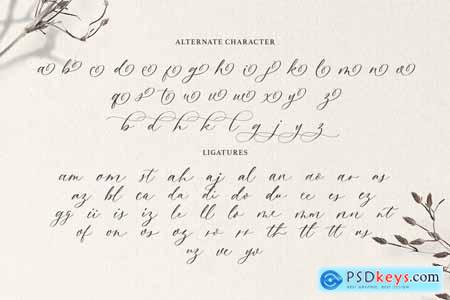 ALTERNATE CHARACTER
a b c d e f g h i j k l m n o
q s t u v w x y z
b d h k l g j y z
LIGATURES
am om st ah aj al an ao ar as
az bl ca da di do du ee es ez
gg ii is iz le ll lo me mm nn nt
of on os oz ro rr th tl tt us
uz ve yv
PSDkeys.com